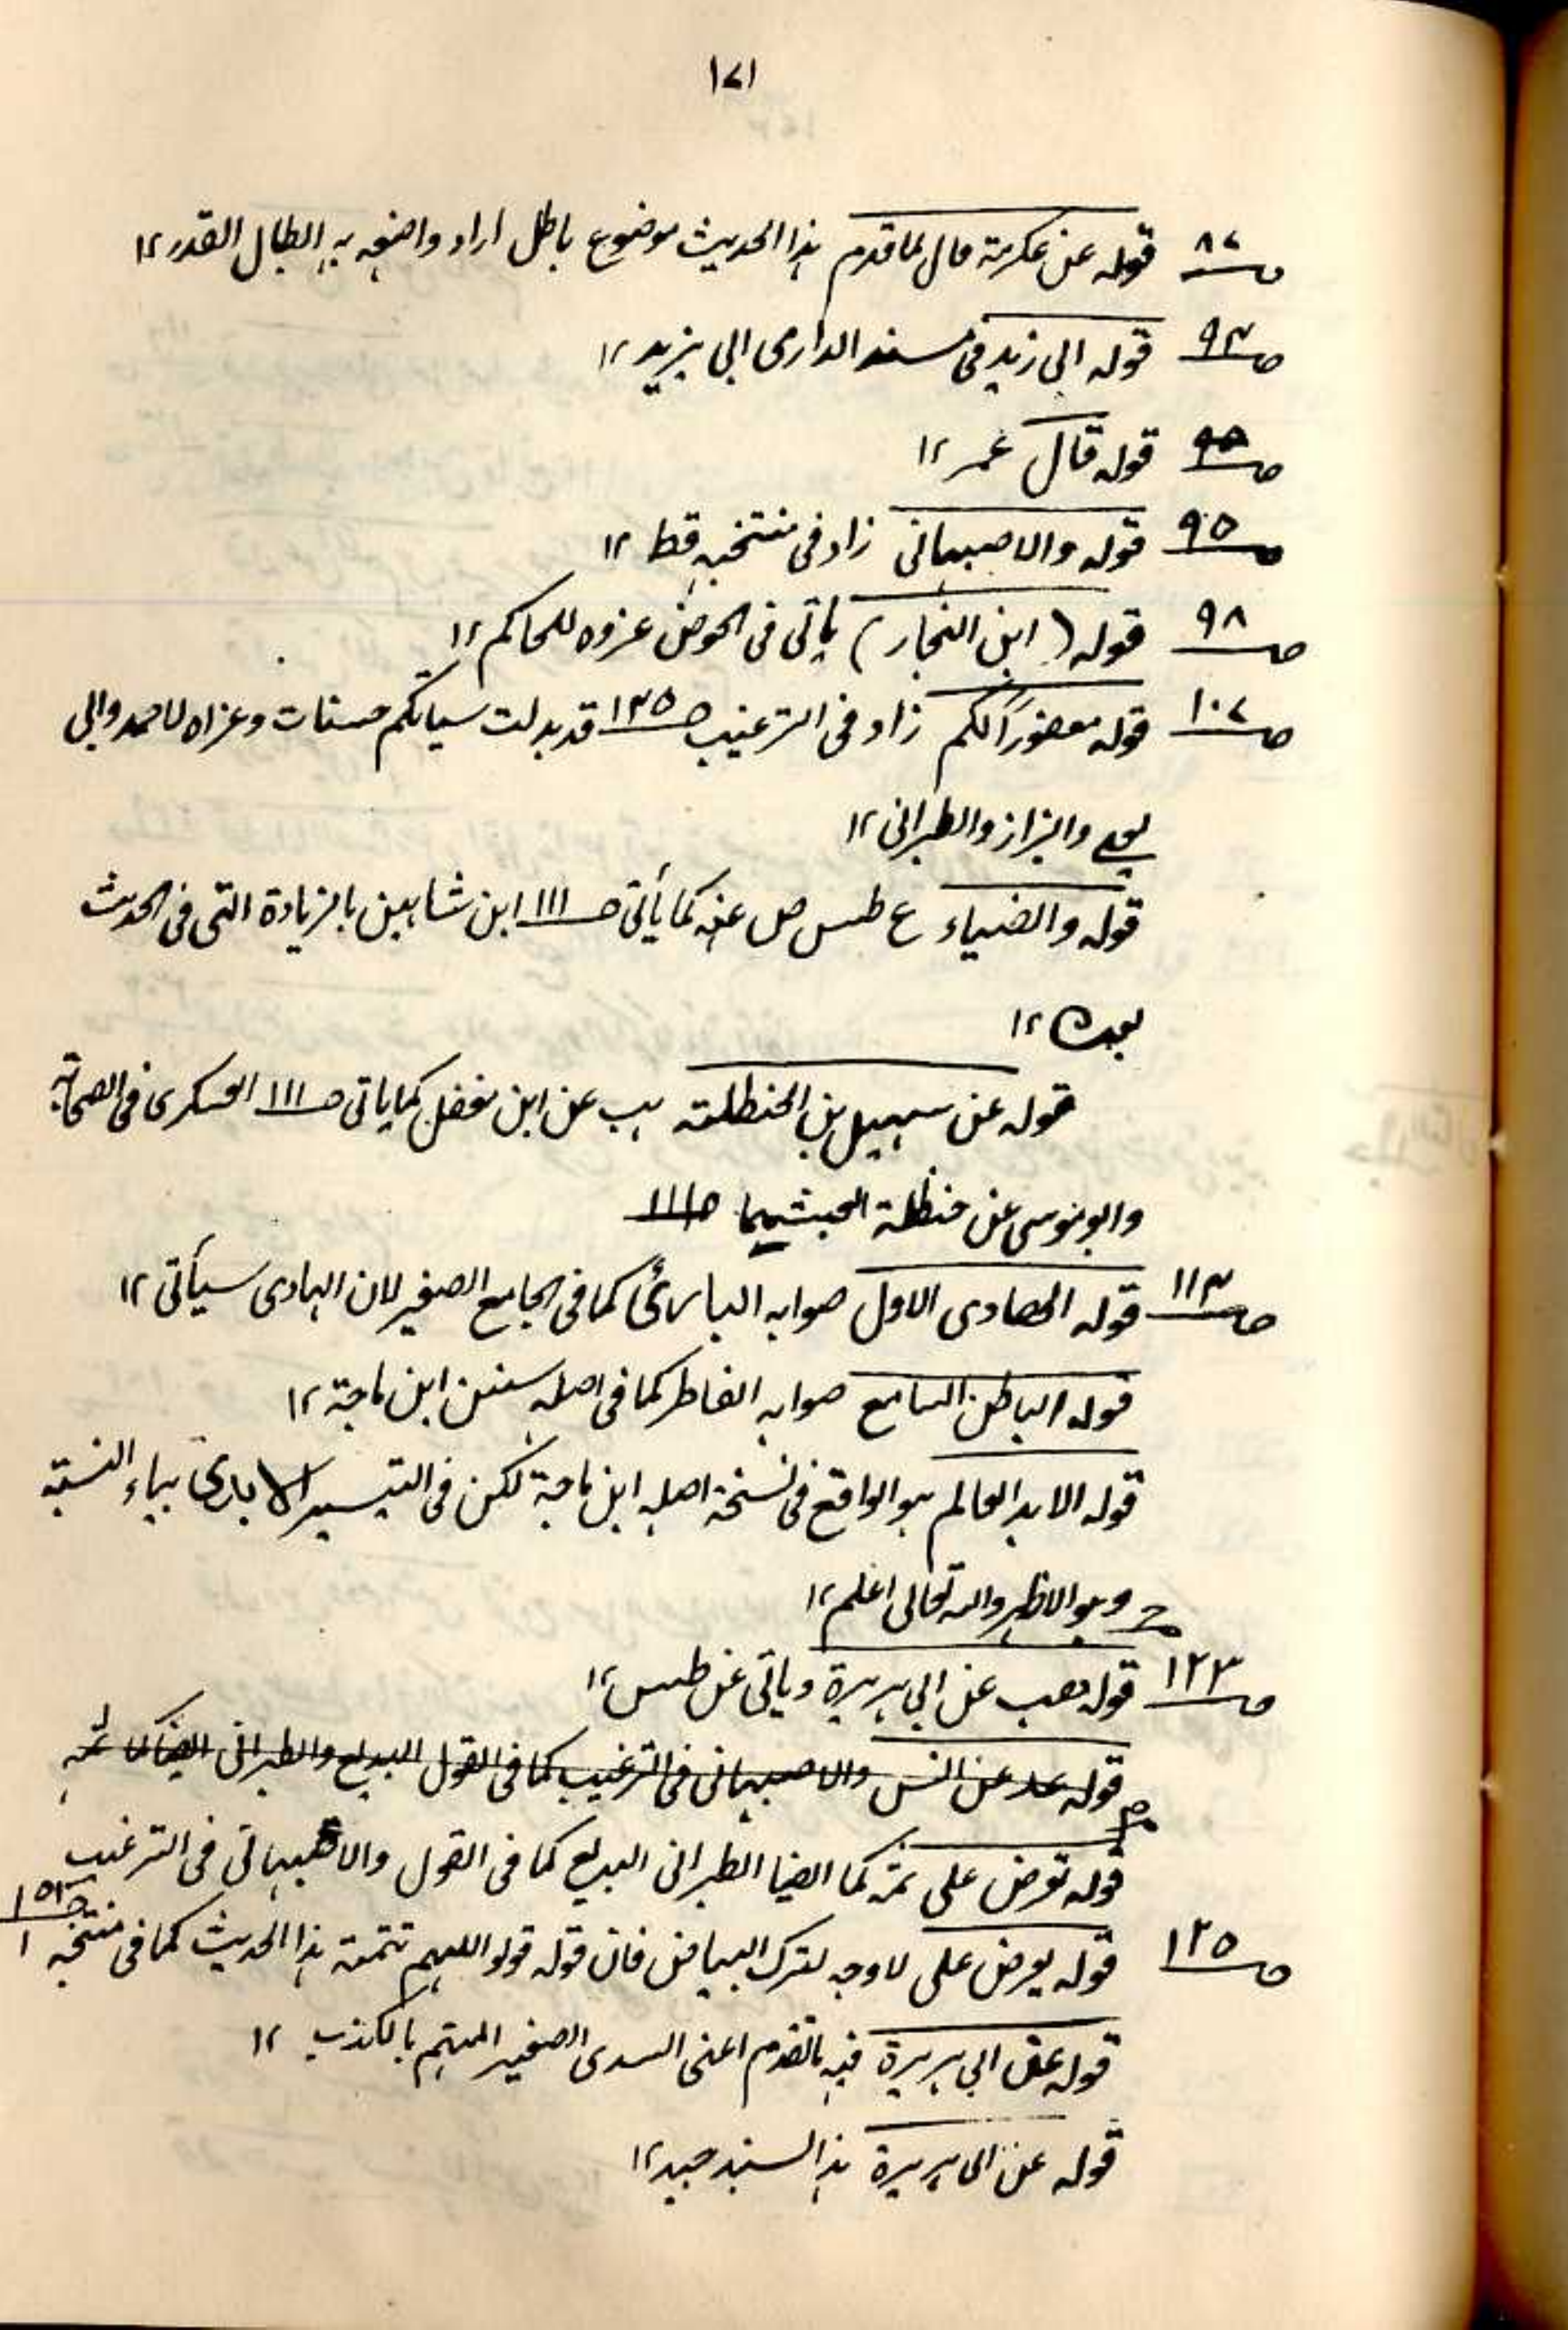 ۱۷۱
ص۸۷ قوله عن عكرمة قال لما قدم هذا الحديث موضوع باطل اراد واضعه به ابطال القدر ۱۲
ص۹۳ قوله ابي زيد في مسند الدارمي ابي يزيد ۱۲
ص۹۵ قوله قال عمر ۱۲
ص۹۵ قوله والاصبهاني زاد في منتخبه قط ۱۲
ص۹۸ قوله (ابن النجار) ياتي في الحوض عزوه للحاكم ۱۲
ص۱۰۷ قوله مغفورا لكم زاد في الترغيب ص۱۳۵ قد بدلت سيأتكم حسنات وعزاه لاحمد وابي
يعلى والبزار والطبراني ۱۲
قوله والضياء ع طس ص عنه كما يأتي ص۱۱۱ ابن شاهين بالزيادة التي في الحديث
بعده ۱۲
قوله عن سهيل بن الحنظلة هب عن ابن مغفل كما ياتي ص۱۱۱ العسكري في الصحابة
وابو موسى عن حنظلة العبشمي ص۱۱۱
ص۱۱۳ قوله الهادي الاول صوابه البارئ كما في الجامع الصغير لان الهادي سيأتي ۱۲
قوله الباطن السامع صوابه الفاطر كما في اصله سنن ابن ماجة ۱۲
قوله الابد العالم هو الواقع في نسخة اصله ابن ماجة لكن في التيسير الابدي بياء النسبة
وهو الاظهر والله تعالى اعلم ۱۲
ص۱۲۳ قوله هب عن ابي هريرة وياتي عن طس ۱۲
قوله عد عن انس والاصبهاني في الترغيب كما في القول البديع والطبراني ايضا كما ثمه
قوله تعرض على ثمه كما ايضا الطبراني البديع كما في القول والاصبهاني في الترغيب
ص۱۲۵ قوله يعرض على لا وجه لترك البياض فان قوله قولوا اللهم تتمة هذا الحديث كما في منتخبه ص۱۵۳
قوله عق ابي هريرة فيه ما تقدم اعني السدي الصغير المتهم بالكذب ۱۲
قوله عن ابي هريرة هذا السند جيد ۱۲